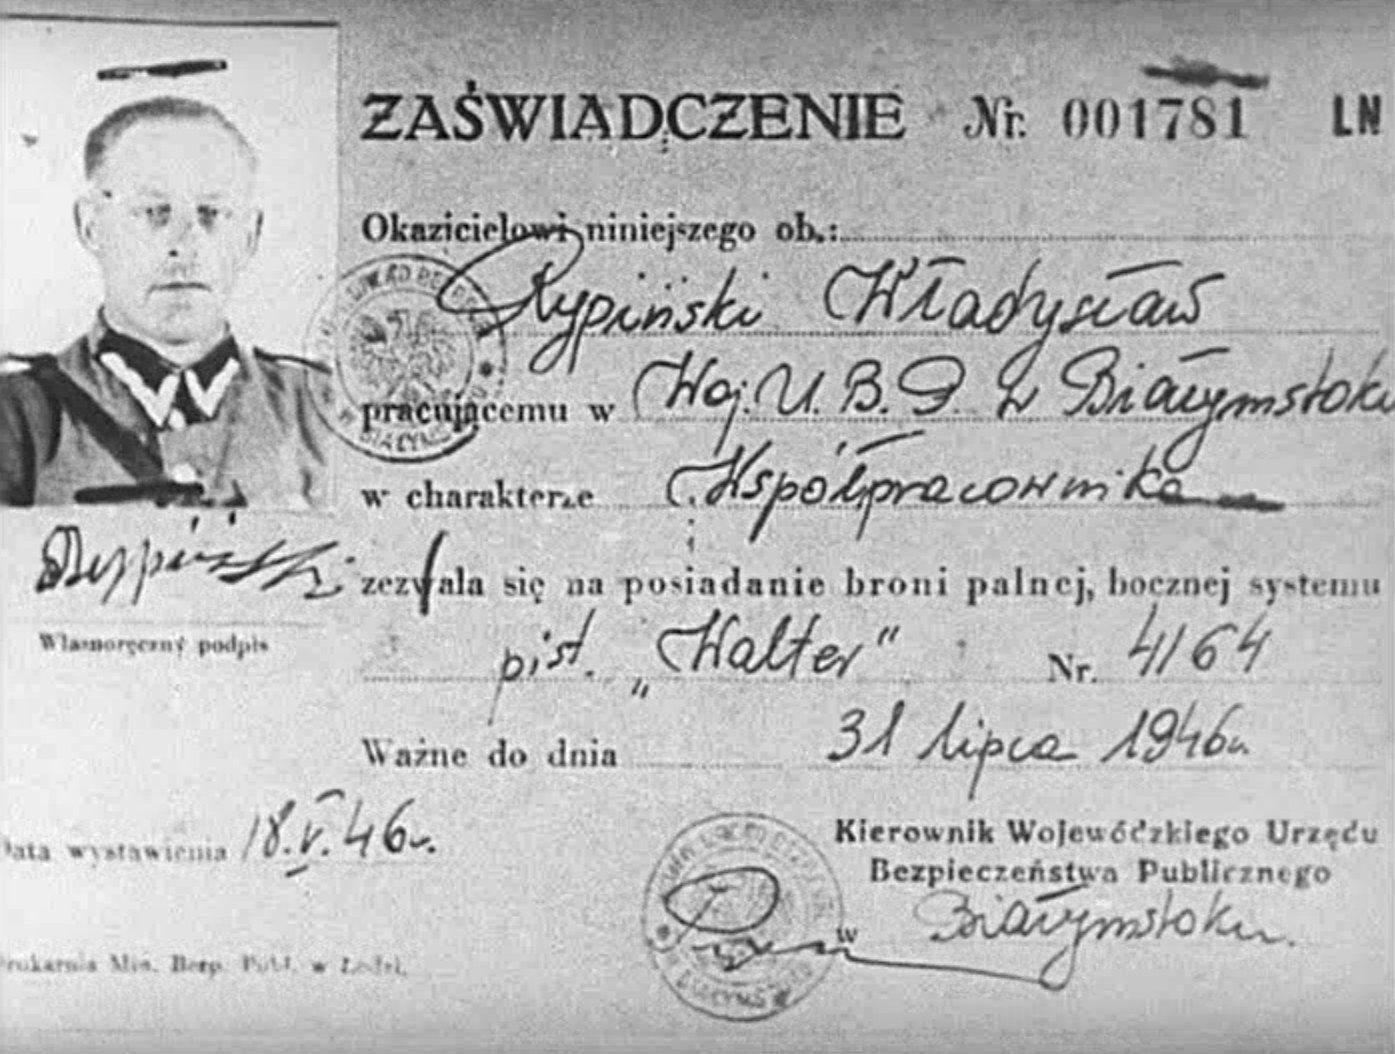 ZAŚWIADCZENIE Nr. 001781 LN
Okazicielowi niniejszego ob.:
Rypiński Władysław
pracującemu w Woj. U. B. P. w Białymstoku
w charakterze Współpracownika
Rypiński
Własnoręczny podpis
zezwala się na posiadanie broni palnej, bocznej systemu
pist. „Walter” Nr. 4164
Ważne do dnia 31 lipca 1946r.
Data wystawienia 18.V.46r.
Kierownik Wojewódzkiego Urzędu
Bezpieczeństwa Publicznego
w Białymstoku.
Drukarnia Min. Bezp. Publ. w Łodzi.